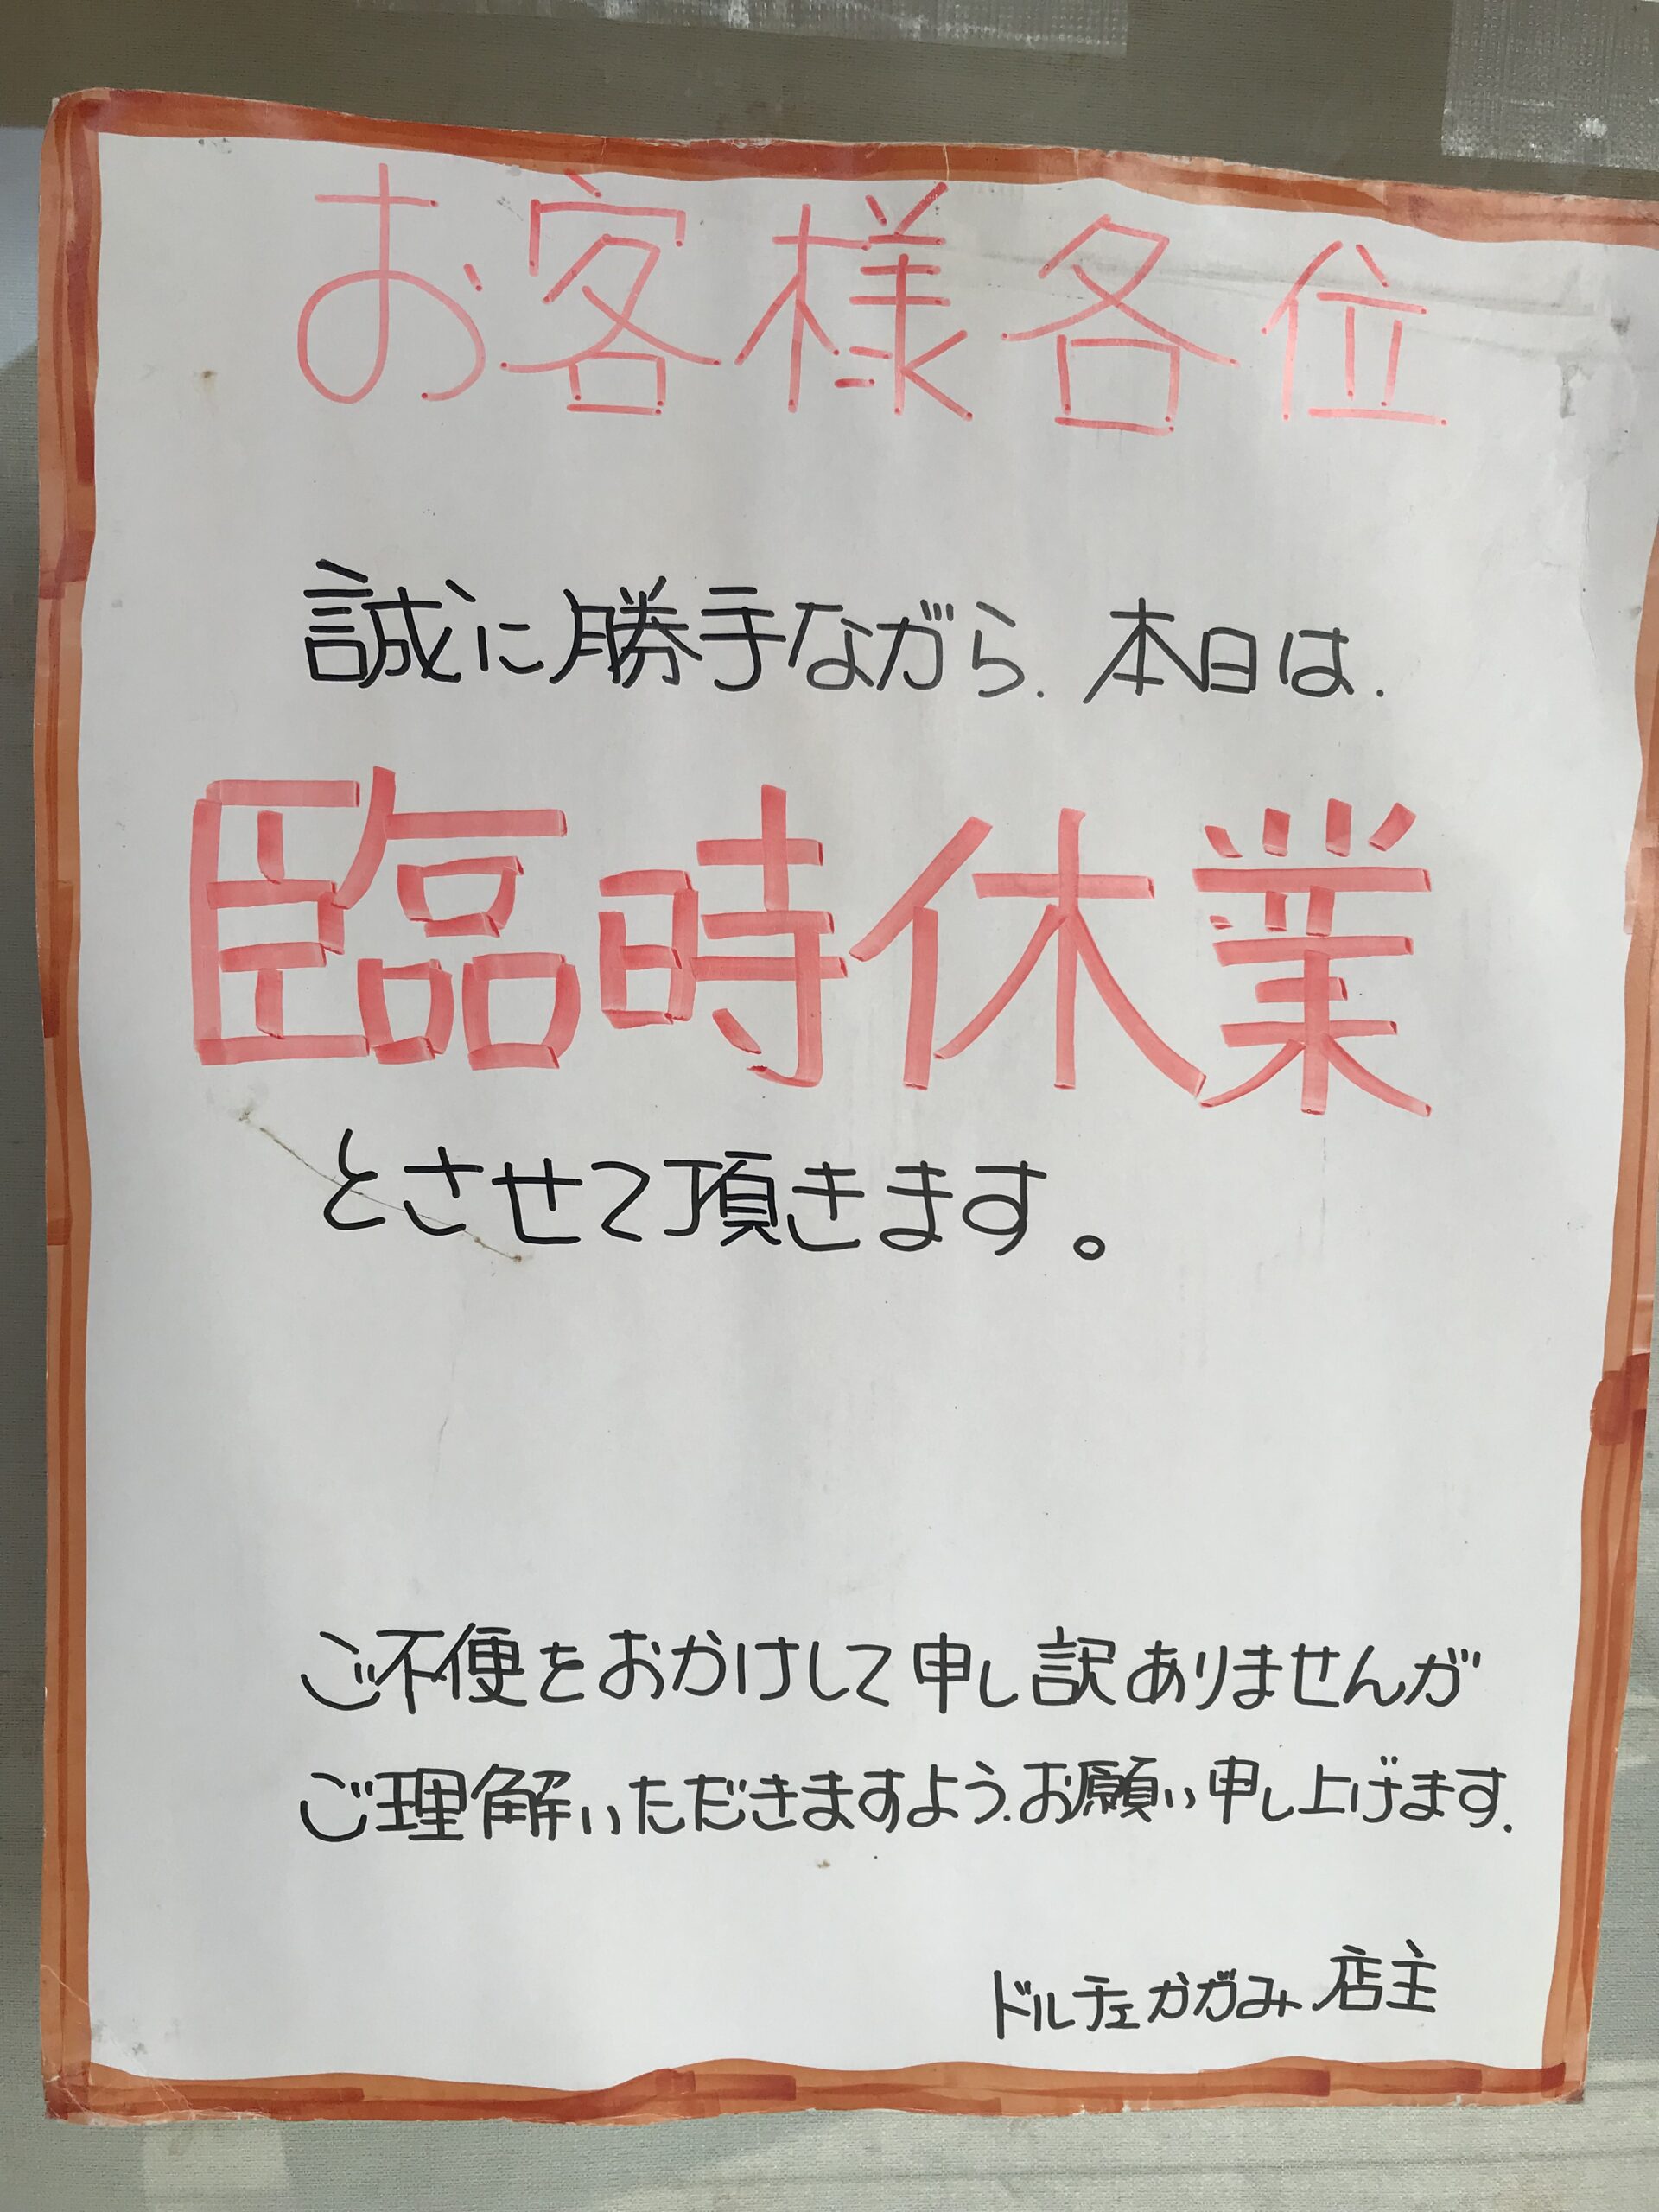 お客様各位
誠に勝手ながら、本日は、
臨時休業
とさせて頂きます。
ご不便をおかけして申し訳ありませんが
ご理解いただきますよう、お願い申し上げます。
ドルチェかがみ 店主